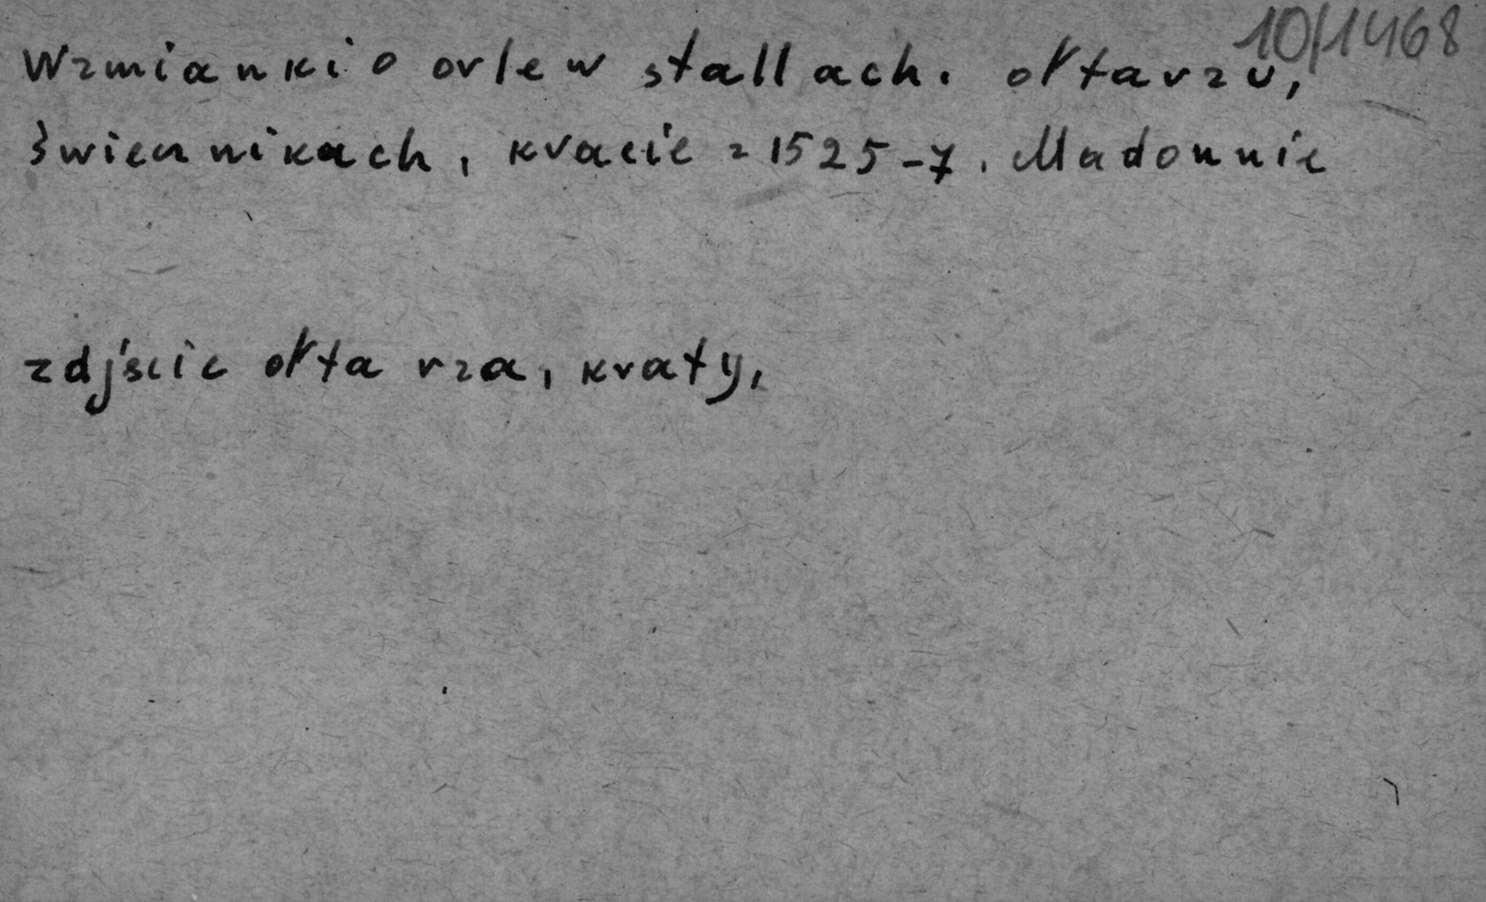 10/1468
Wzmianki o orle w stallach. ołtarzu,
świecznikach, kracie z 1525-7. Madonnie
zdjście ołtarza, kraty,